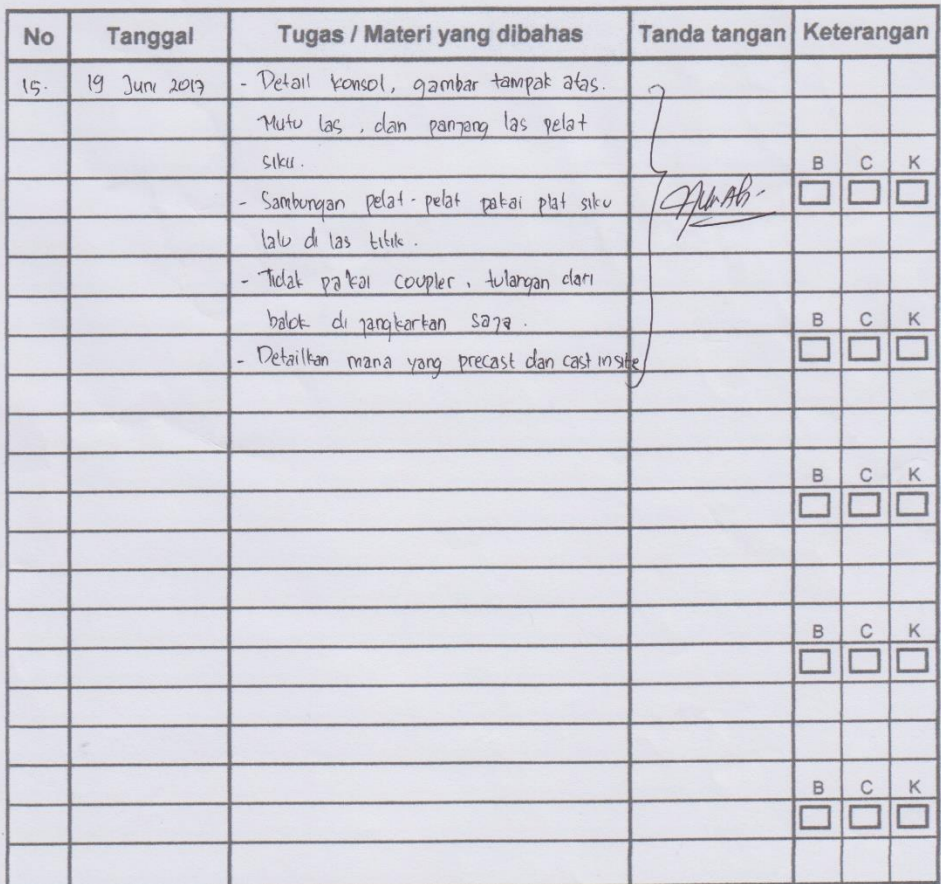 No Tanggal Tugas / Materi yang dibahas Tanda tangan Keterangan
15. 19 Juni 2017 - Detail konsol, gambar tampak atas.
Mutu las, dan panjang las pelat
siku.
B C K
- Sambungan pelat-pelat pakai plat siku
lalu di las titik.
- Tidak pakai coupler, tulangan dari
balok di jangkarkan saja.
B C K
- Detailkan mana yang precast dan cast insite
B C K
B C K
B C K